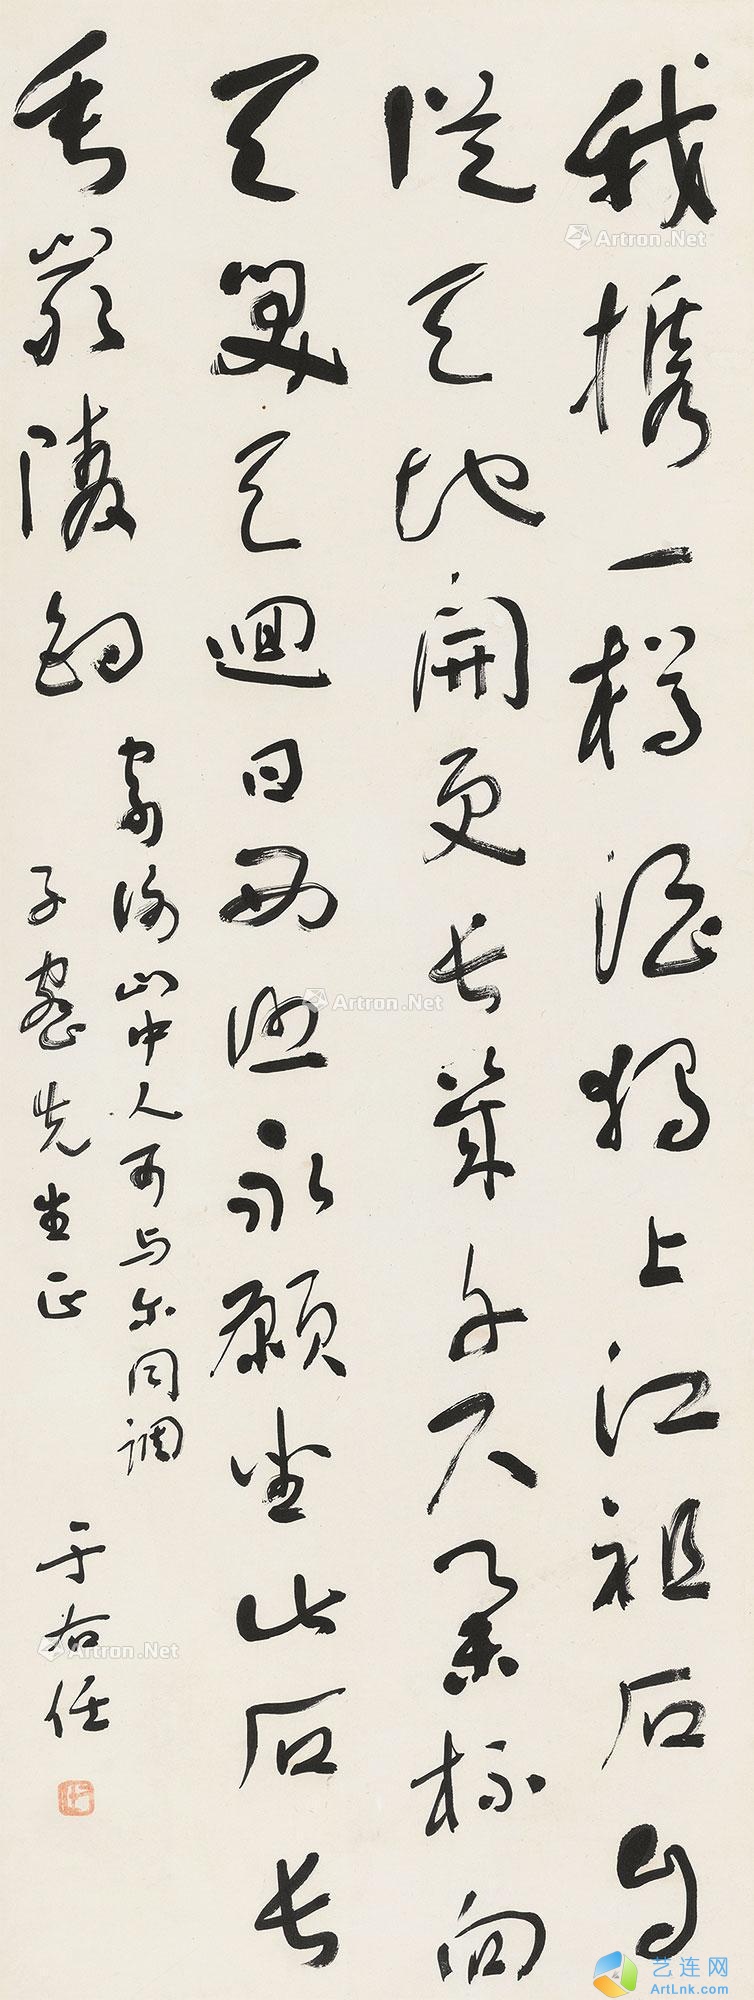 我攜一樽酒獨上江祖石自
從天地開更長幾千尺舉杯向
天笑天迴日西照永願坐此石長
垂嚴陵釣
寄謝山中人可與爾同調
子 先生正
于右任
Artron.Net
Artron.Net
Artron.Net
艺连网
ArtLnk.com